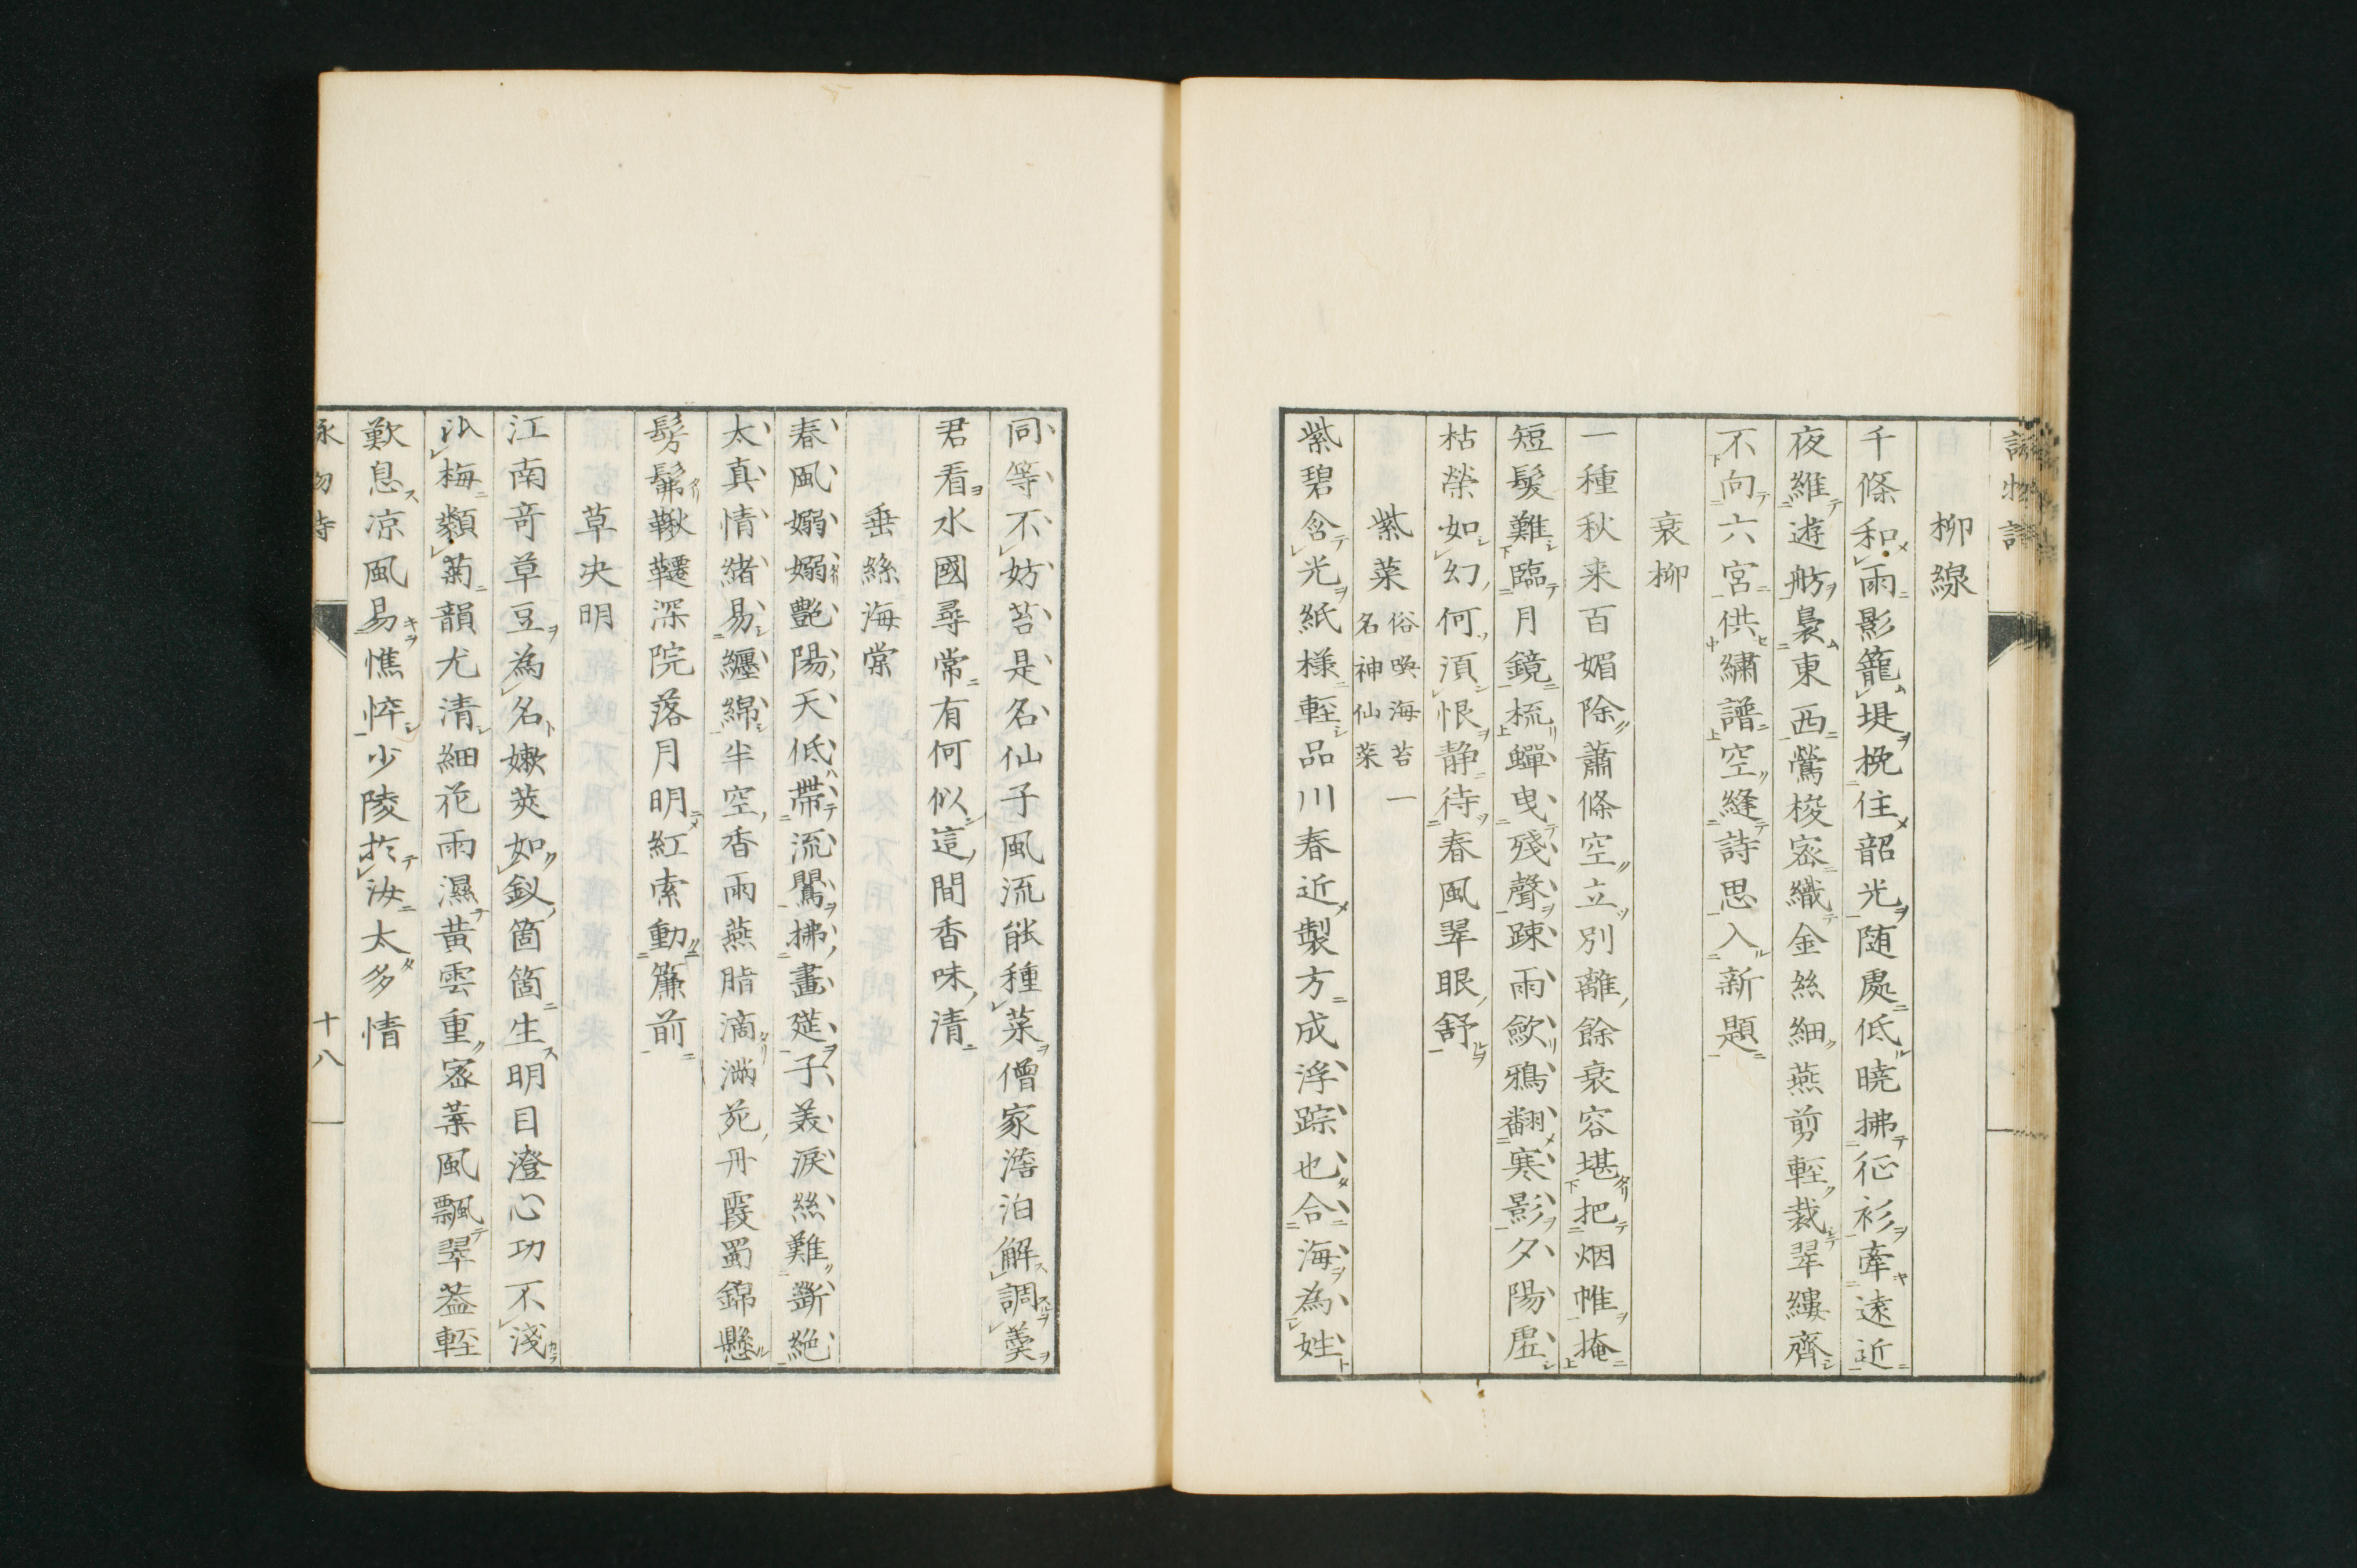 詠物詩
柳線
千條和雨影籠堤挽住韶光随處低曉拂征衫牽遠近
夜維遊舫裊東西鶯梭密織金絲細燕剪輕裁翠縷齊
不向六宮供繡譜空縫詩思入新題
衰柳
一種秋来百媚除蕭條空立別離餘衰容堪把烟帷掩
短髮難臨月鏡梳蟬曳殘聲踈雨歛鴉翻寒影夕陽虚
枯榮如幻何須恨静待春風翠眼舒
紫菜
俗喚海苔一
名神仙菜
紫碧含光紙樣輕品川春近製方成浮踪也合海為姓
同等不妨苔是名仙子風流能種菜僧家澹泊解調羮
君看水國尋常有何似這間香味清
垂絲海棠
春風嫋嫋艶陽天低帶流鶯拂畫筵子美淚絲難斷絕
太真情緒易纏綿半空香雨燕脂滴滿苑丹霞蜀錦懸
髣髴鞦韆深院落月明紅索動簾前
草决明
江南奇草豆為名嫩莢如釵箇箇生明目澄心功不淺
比梅類菊韻尤清細花雨濕黃雲重密葉風飄翠蓋輕
歎息凉風易憔悴少陵於汝太多情
詠物詩
十八